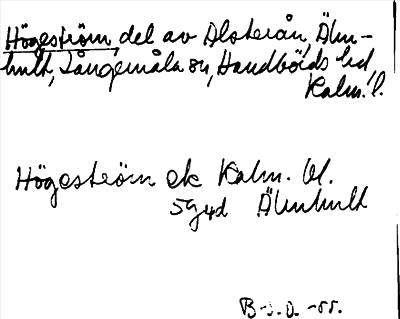 Högeström, del av Alsterån, Älm-
hult, Långemåla sn, Handbörds hd,
Kalm. l.
Högeström ek Kalm. bl.
5g4d Älmhult
B-s.a. -55.